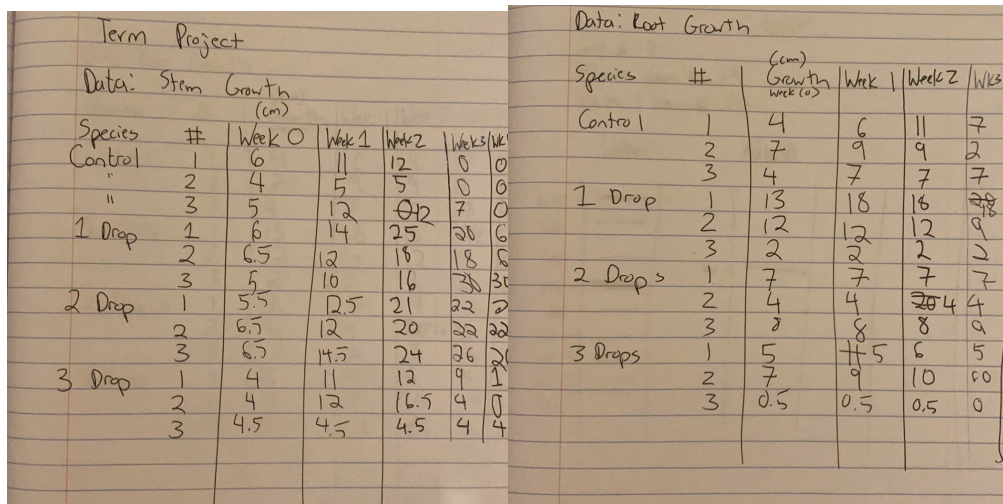 Term Project
Data: Stem Growth
(cm)
Species # Week 0 Week 1 Week 2 Week 3 Wk
Control 1 6 11 12 0 0
" 2 4 5 5 0 0
" 3 5 12 12 7 0
1 Drop 1 6 14 25 20 6
2 6.5 12 18 18
3 5 10 16 30
2 Drop 1 5.5 12.5 21 22
2 6.5 12 20 22 22
3 6.5 14.5 24 26
3 Drop 1 4 11 12 9 1
2 4 12 16.5 4 0
3 4.5 4.5 4.5 4 4
Data: Root Growth
(cm)
Species # Growth Week 1 Week 2 Wk3
Week (0)
Control 1 4 6 11 7
2 7 9 9 2
3 4 7 7 7
1 Drop 1 13 18 18 18
2 12 12 12 9
3 2 2 2 2
2 Drops 1 7 7 7 7
2 4 4 4 4
3 8 8 8 9
3 Drops 1 5 5 6 5
2 7 9 10
3 0.5 0.5 0.5 0